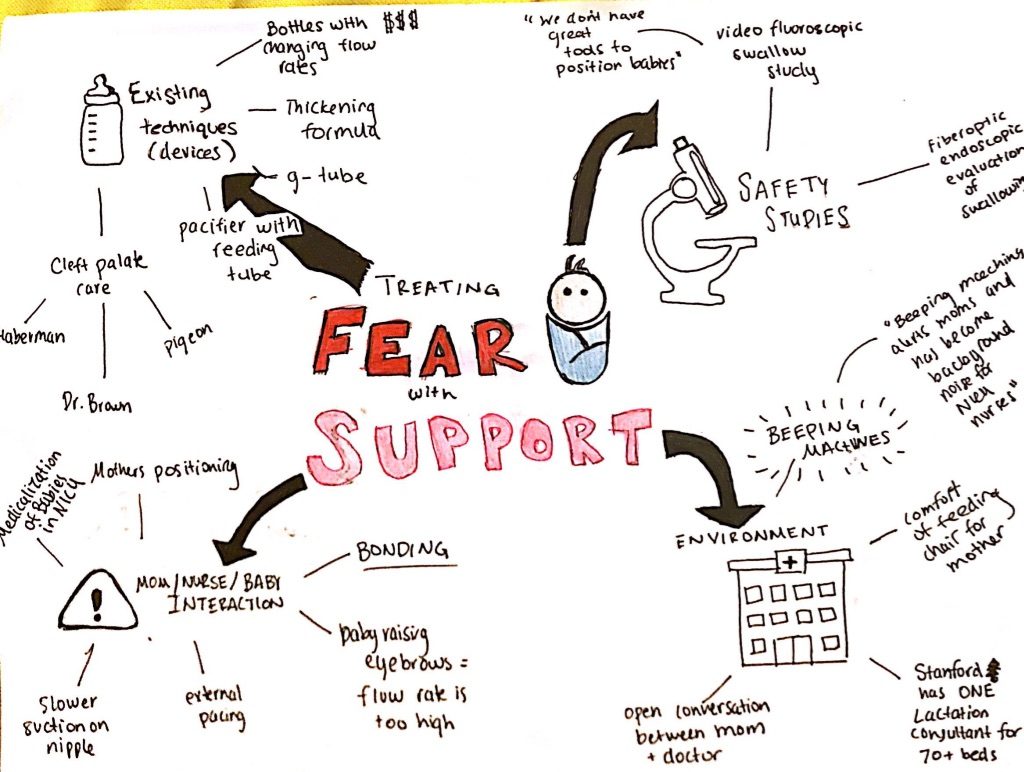 TREATING
FEAR
with
SUPPORT
Existing
techniques
(devices)
Bottles with $$$
changing flow
rates
Thickening
formula
g-tube
pacifier with
feeding
tube
Cleft palate
care
Haberman
Dr. Brown
pigeon
SAFETY
STUDIES
"We don't have
great
tools to
position babies"
video fluoroscopic
swallow
study
Fiberoptic
endoscopic
evaluation
of
swallowing
ENVIRONMENT
BEEPING
MACHINES
"Beeping machines
alerts moms and
has become
background
noise for
NICU
nurses"
comfort
of feeding
chair for
mother
Stanford
has ONE
Lactation
consultant for
70+ beds
open conversation
between mom
+ doctor
MOM/NURSE/BABY
INTERACTION
!
Medicalization
of Babies
in NICU
Mothers positioning
BONDING
baby raising
eyebrows =
flow rate is
too high
external
pacing
Slower
suction on
nipple